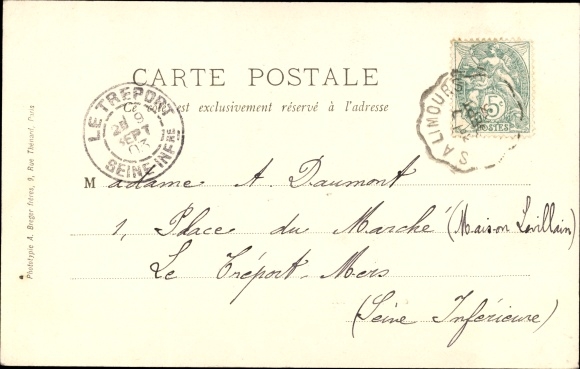 CARTE POSTALE
Ce côté est exclusivement réservé à l'adresse
LE TREPORT
28
SEPT
03
SEINE-INFRE
S A LIMOURS
5c
POSTES
Madame A. Daumont
1, Place du Marché (Maison Levillain)
Le Tréport-Mers
(Seine Inférieure)
Phototypie A. Breger frères, 9, Rue Thénard, Paris